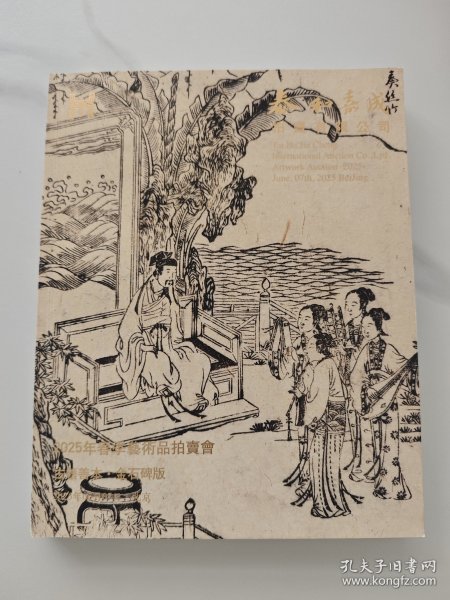 泰和嘉成
Tai He Jia Cheng
International Auction Co.,Ltd
Artwork Auction 2025
June. 07th, 2025 BeiJing
2025年春季藝術品拍賣會
古籍善本·金石碑版
孔夫子旧书网
www.kongfz.com